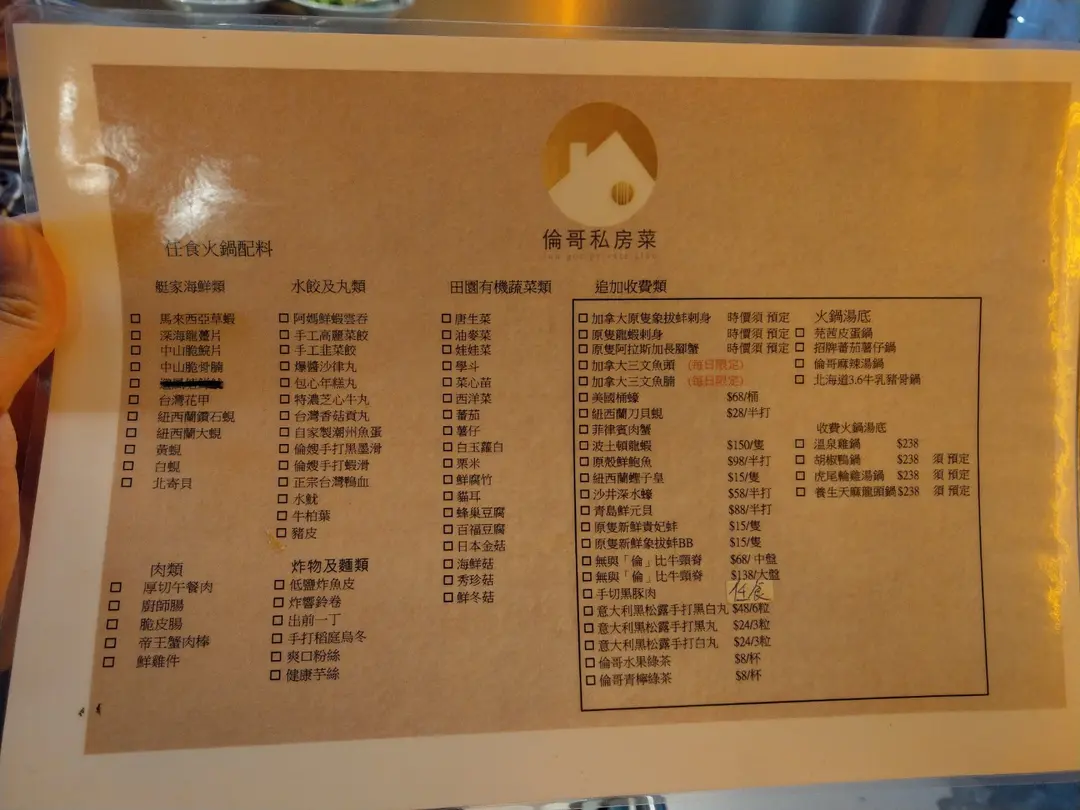 倫哥私房菜
任食火鍋配料
艇家海鮮類
馬來西亞草蝦
深海龍躉片
中山脆鯇片
中山脆骨腩
台灣花甲
紐西蘭鑽石蜆
紐西蘭大蜆
黃蜆
白蜆
北寄貝
肉類
厚切午餐肉
廚師腸
脆皮腸
帝王蟹肉棒
鮮雞件
水餃及丸類
阿媽鮮蝦雲吞
手工高麗菜餃
手工韭菜餃
爆醬沙律丸
包心年糕丸
特濃芝心牛丸
台灣香菇貢丸
自家製潮州魚蛋
倫嫂手打黑墨滑
倫嫂手打蝦滑
正宗台灣鴨血
水魷
牛柏葉
豬皮
炸物及麵類
低鹽炸魚皮
炸響鈴卷
出前一丁
手打稻庭烏冬
爽口粉絲
健康芋絲
田園有機蔬菜類
唐生菜
油麥菜
娃娃菜
學斗
菜心苗
西洋菜
蕃茄
薯仔
白玉蘿白
粟米
鮮腐竹
貓耳
蜂巢豆腐
百福豆腐
日本金菇
海鮮菇
秀珍菇
鮮冬菇
追加收費類
加拿大原隻象拔蚌刺身 時價須 預定
原隻龍蝦刺身 時價須 預定
原隻阿拉斯加長腳蟹 時價須 預定
加拿大三文魚頭 (每日限定)
加拿大三文魚腩 (每日限定)
美國桶蠔 $68/桶
紐西蘭刀貝蜆 $28/半打
菲律賓肉蟹
波士頓龍蝦 $150/隻
原殼鮮鮑魚 $98/半打
紐西蘭鱆子皇 $15/隻
沙井深水蠔 $58/半打
青島鮮元貝 $88/半打
原隻新鮮貴妃蚌 $15/隻
原隻新鮮象拔蚌BB $15/隻
無與「倫」比牛頸脊 $68/ 中盤
無與「倫」比牛頸脊 $138/大盤
手切黑豚肉 任食
意大利黑松露手打黑白丸 $48/6粒
意大利黑松露手打黑丸 $24/3粒
意大利黑松露手打白丸 $24/3粒
倫哥水果綠茶 $8/杯
倫哥青檸綠茶 $8/杯
火鍋湯底
芫茜皮蛋鍋
招牌蕃茄薯仔鍋
倫哥麻辣湯鍋
北海道3.6牛乳豬骨鍋
收費火鍋湯底
溫泉雞鍋 $238
胡椒鴨鍋 $238 須 預定
虎尾輪雞湯鍋 $238 須 預定
養生天麻龍頭鍋 $238 須 預定